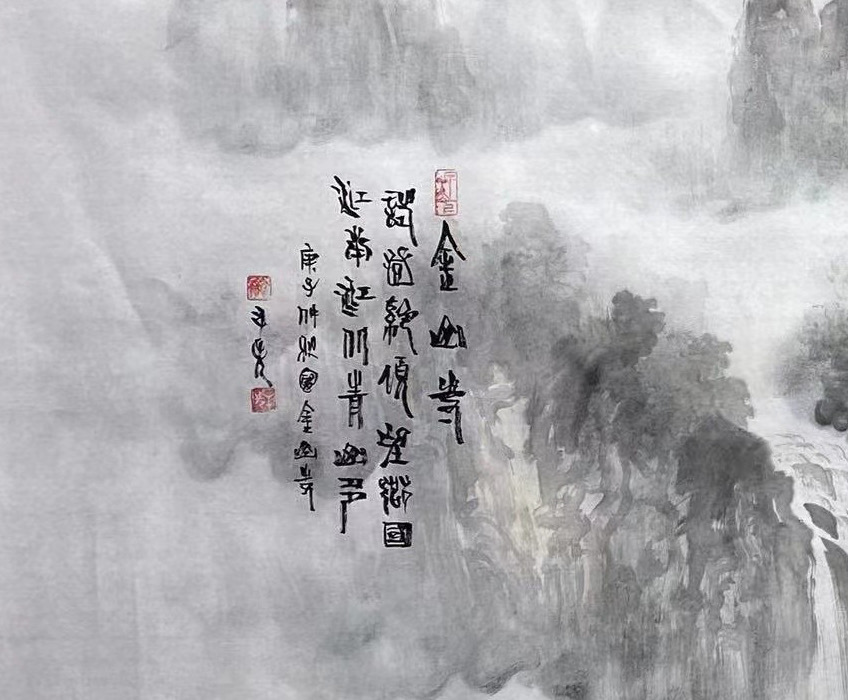 金山寺
試登絕頂望鄉國
江南江北青山多
庚子仲秋圖金山寺